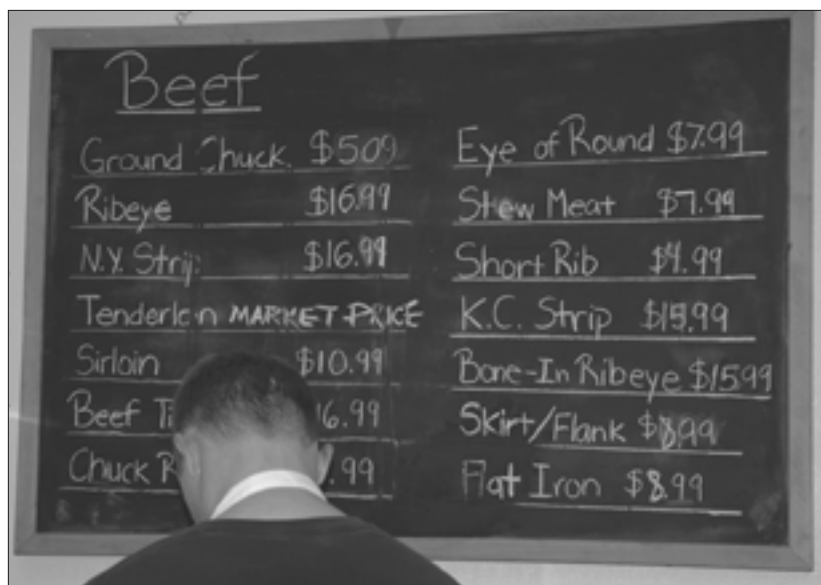 Beef
Ground Chuck $5.09
Ribeye $16.99
N.Y. Strip $16.99
Tenderloin MARKET PRICE
Sirloin $10.99
Beef 6.99
Chuck .99
Eye of Round $7.99
Stew Meat $7.99
Short Rib $4.99
K.C. Strip $15.99
Bone-In Ribeye $15.99
Skirt/Flank $8.99
Flat Iron $8.99